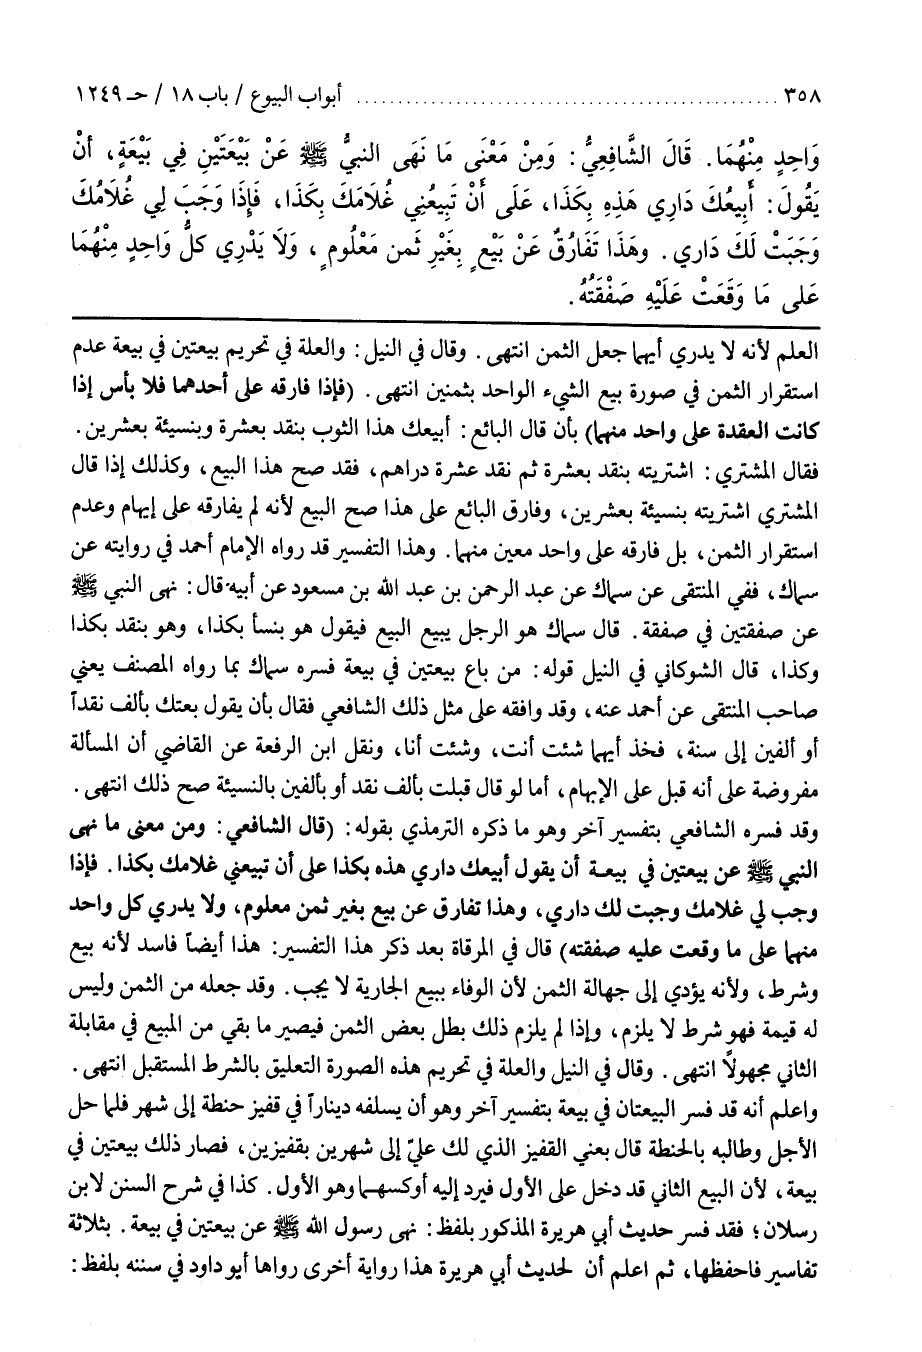 ٣٥٨ ........................................ أبواب البيوع / باب ١٨ / حـ ١٢٤٩
وَاحِدٍ مِنْهُمَا. قَالَ الشَّافِعِيُّ: وَمِنْ مَعْنَى مَا نَهَى النبيُّ ﷺ عَنْ بَيْعَتَيْنِ فِي بَيْعَةٍ، أنْ
يَقُولَ: أَبِيعُكَ دَارِي هَذِهِ بِكَذَا، عَلَى أَنْ تَبِيعُنِي غُلَامَكَ بِكَذَا، فَإِذَا وَجَبَ لِي غُلَامُكَ
وَجَبَتْ لَكَ دَارِي. وهَذَا تَفَارُقٌ عَنْ بَيْعٍ بِغَيْرِ ثَمنٍ مَعْلُومٍ، وَلَا يَدْرِي كلُّ وَاحِدٍ مِنْهُمَا
عَلى مَا وَقَعَتْ عَلَيْهِ صَفْقَتُهُ.
العلم لأنه لا يدري أيهما جعل الثمن انتهى. وقال في النيل: والعلة في تحريم بيعتين في بيعة عدم
استقرار الثمن في صورة بيع الشيء الواحد بثمنين انتهى. (فإذا فارقه على أحدهما فلا بأس إذا
كانت العقدة على واحد منهما) بأن قال البائع: أبيعك هذا الثوب بنقد بعشرة وبنسيئة بعشرين.
فقال المشتري: اشتريته بنقد بعشرة ثم نقد عشرة دراهم، فقد صح هذا البيع، وكذلك إذا قال
المشتري اشتريته بنسيئة بعشرين، وفارق البائع على هذا صح البيع لأنه لم يفارقه على إيهام وعدم
استقرار الثمن، بل فارقه على واحد معين منهما. وهذا التفسير قد رواه الإمام أحمد في روايته عن
سماك، ففي المنتقى عن سماك عن عبد الرحمن بن عبد الله بن مسعود عن أبيه قال: نهى النبي ﷺ
عن صفقتين في صفقة. قال سماك هو الرجل يبيع البيع فيقول هو بنسأ بكذا، وهو بنقد بكذا
وكذا، قال الشوكاني في النيل قوله: من باع بيعتين في بيعة فسره سماك بما رواه المصنف يعني
صاحب المنتقى عن أحمد عنه، وقد وافقه على مثل ذلك الشافعي فقال بأن يقول بعتك بألف نقداً
أو ألفين إلى سنة، فخذ أيهما شئت أنت، وشئت أنا، ونقل ابن الرفعة عن القاضي أن المسألة
مفروضة على أنه قبل على الإبهام، أما لو قال قبلت بألف نقد أو بألفين بالنسيئة صح ذلك انتهى.
وقد فسره الشافعي بتفسير آخر وهو ما ذكره الترمذي بقوله: (قال الشافعي: ومن معنى ما نهى
النبي ﷺ عن بيعتين في بيعة أن يقول أبيعك داري هذه بكذا على أن تبيعني غلامك بكذا. فإذا
وجب لي غلامك وجبت لك داري، وهذا تفارق عن بيع بغير ثمن معلوم، ولا يدري كل واحد
منهما على ما وقعت عليه صفقته) قال في المرقاة بعد ذكر هذا التفسير: هذا أيضاً فاسد لأنه بيع
وشرط، ولأنه يؤدي إلى جهالة الثمن لأن الوفاء ببيع الجارية لا يجب. وقد جعله من الثمن وليس
له قيمة فهو شرط لا يلزم، وإذا لم يلزم ذلك بطل بعض الثمن فيصير ما بقي من المبيع في مقابلة
الثاني مجهولاً انتهى. وقال في النيل والعلة في تحريم هذه الصورة التعليق بالشرط المستقبل انتهى.
واعلم أنه قد فسر البيعتان في بيعة بتفسير آخر وهو أن يسلفه ديناراً في قفيز حنطة إلى شهر فلما حل
الأجل وطالبه بالحنطة قال بعني القفيز الذي لك عليّ إلى شهرين بقفيزين، فصار ذلك بيعتين في
بيعة، لأن البيع الثاني قد دخل على الأول فيرد إليه أوكسهما وهو الأول. كذا في شرح السنن لابن
رسلان؛ فقد فسر حديث أبي هريرة المذكور بلفظ: نهى رسول الله ﷺ عن بيعتين في بيعة. بثلاثة
تفاسير فاحفظها، ثم اعلم أن لحديث أبي هريرة هذا رواية أخرى رواها أبو داود في سننه بلفظ: